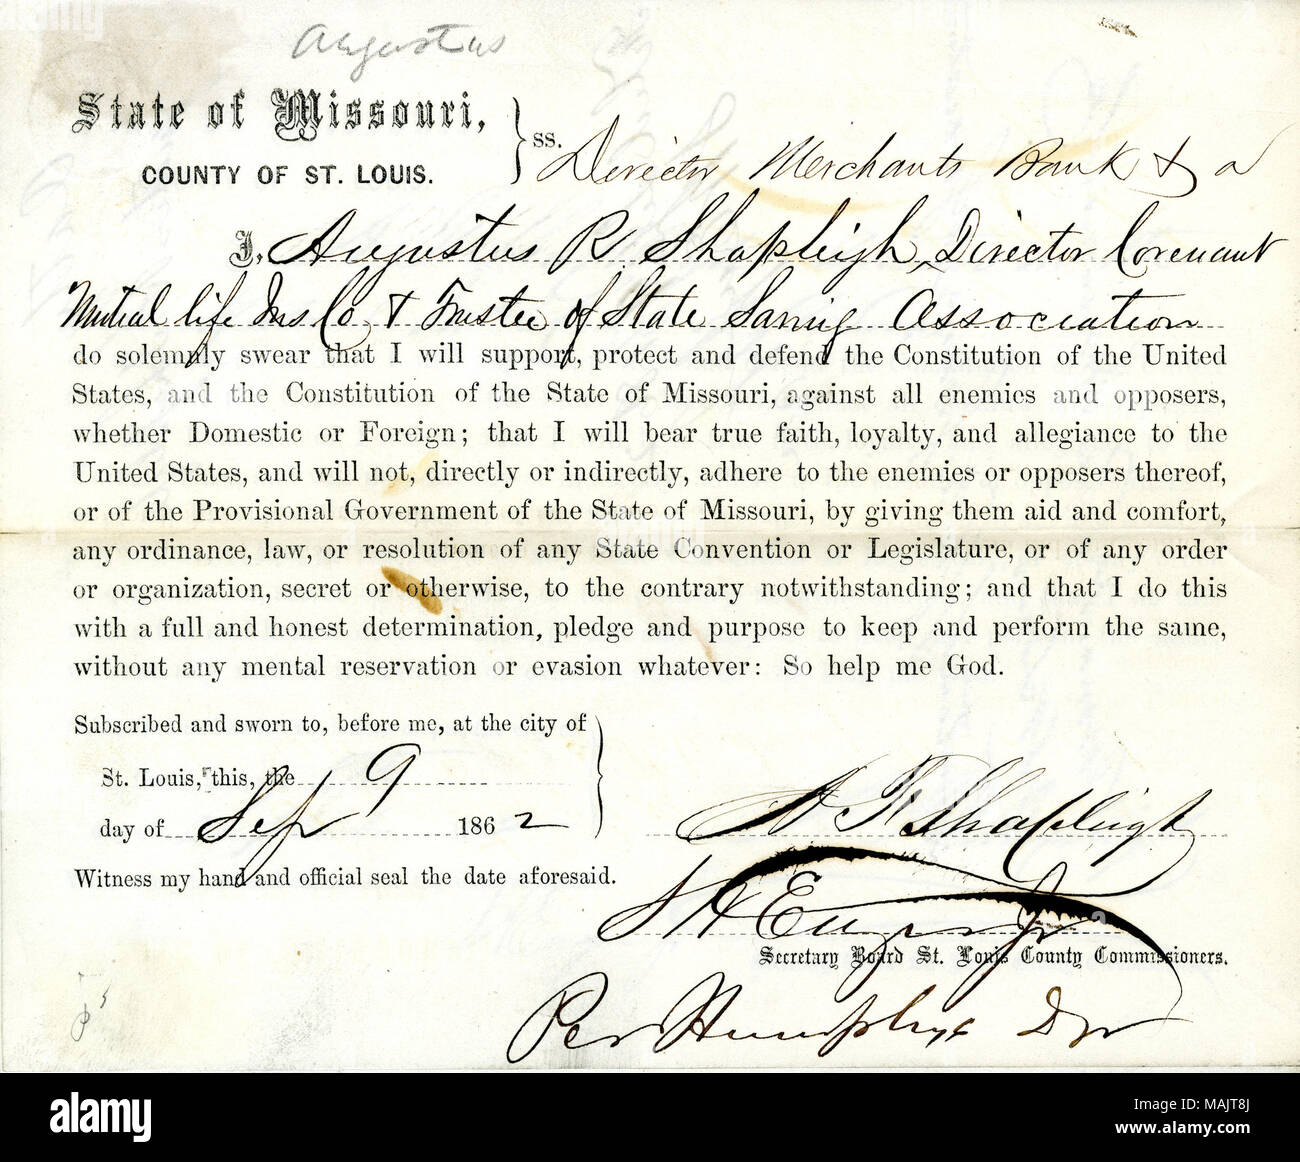 Augustus
State of Missouri,
COUNTY OF ST. LOUIS.
ss. Director Merchants Bank & a
I, Augustus R Shapleigh, Director Covenant
Mutual life Ins Co, & Trustee of State Saving Association
do solemnly swear that I will support, protect and defend the Constitution of the United
States, and the Constitution of the State of Missouri, against all enemies and opposers,
whether Domestic or Foreign; that I will bear true faith, loyalty, and allegiance to the
United States, and will not, directly or indirectly, adhere to the enemies or opposers thereof,
or of the Provisional Government of the State of Missouri, by giving them aid and comfort,
any ordinance, law, or resolution of any State Convention or Legislature, or of any order
or organization, secret or otherwise, to the contrary notwithstanding; and that I do this
with a full and honest determination, pledge and purpose to keep and perform the same,
without any mental reservation or evasion whatever: So help me God.
Subscribed and sworn to, before me, at the city of
St. Louis, this, the 9
day of Sep 1862
Shapleigh
Witness my hand and official seal the date aforesaid.
Secretary Board St. Louis County Commissioners.
Per Humphrys
alamy
Image ID: MAJT8J
www.alamy.com